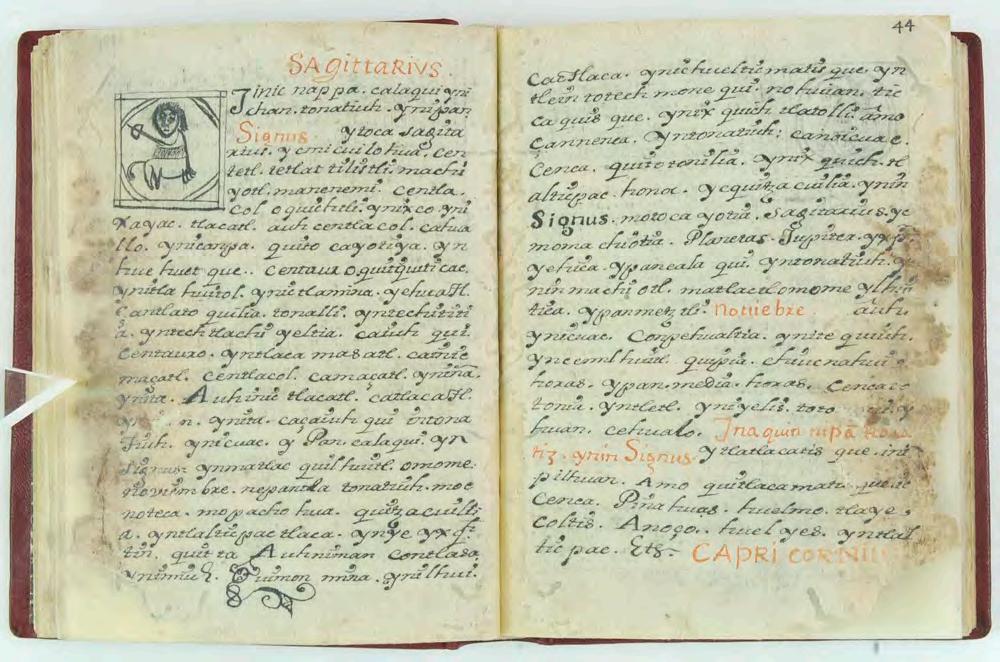 SAgittaRIVS.
Jinic nappa. calaqui yni
chan. tonatiuh. ynipan
Signus. ytoca sagita
rius. y cmicuilo hua. Cen
tetl. tetlat tilistli. machi
yotl. manenemi. centla.
col oquichtli. ynixco yni
xayac. tlacatl. auh centlacol. cahua
llo. ynicanpa. quito cayotiya. yn
hue huet que.. centauro quiquiti cac.
ynitla huitol. ynic tlamina.
tonalli. yntechititi
a. yntech tlachi yeltia. caiuh qui.
Centauro. yntlaca masatl. catnic
maçatl. centlacol. camaçatl. ynina.
ynita. Auhinic tlacatl. catlacatl.
n. ynita. caçaiuh qui intona
tiuh. ynicuac. y Pan. calaqui. yn
Signus: ynmatlac quilhuitl. omome:
nouiembre. nepantla tonatiuh. moc
noteca. mopacho hua. quitzacuilti
a. yntlalticpactlaca. ynye yx
tin. quitta Auhniman contlasa
ynimiuh. ynilhui.
44
Cactlaca. ynic hueltiimatis que. yn
tlein totech mone qui. nohuian. tic
ca quis que. ynix quich tlatolli. amo
çannenca. yntonatiuh: canicuac.
Cenca. quitotonilia. ynix quich. tl
alticpac. onoc. yequitzacuilia. ynin
Signus. motoca yotia. Sagitarius. yc
momachiotia. Planetas. Jupiter. yxp
yehuca. ypancala qui. yntonatiuh. y
nin machiotl. matlactlomome ylhui
tica. ypanmetztli. Nouiebre. auh.
ynicuac. Conpehualtia. ynite quiuh.
yncemilhuitl. quipia. chiucnahui
horas. ypan. media. horas. Cencaçe
tonia. yntletl. yniyelis. toto
huan. cehualo. Jnaquin nipa
tiz. ynin Signus. ytlatlacatis que. ini
pilhuan. Amo quitlacamati. que. ic
Cenca. Pinahuas. huelmo. tlaye,
coltis. Anoço. huel yes. yntlal
tic pac. Ets.- CAPRICORNII